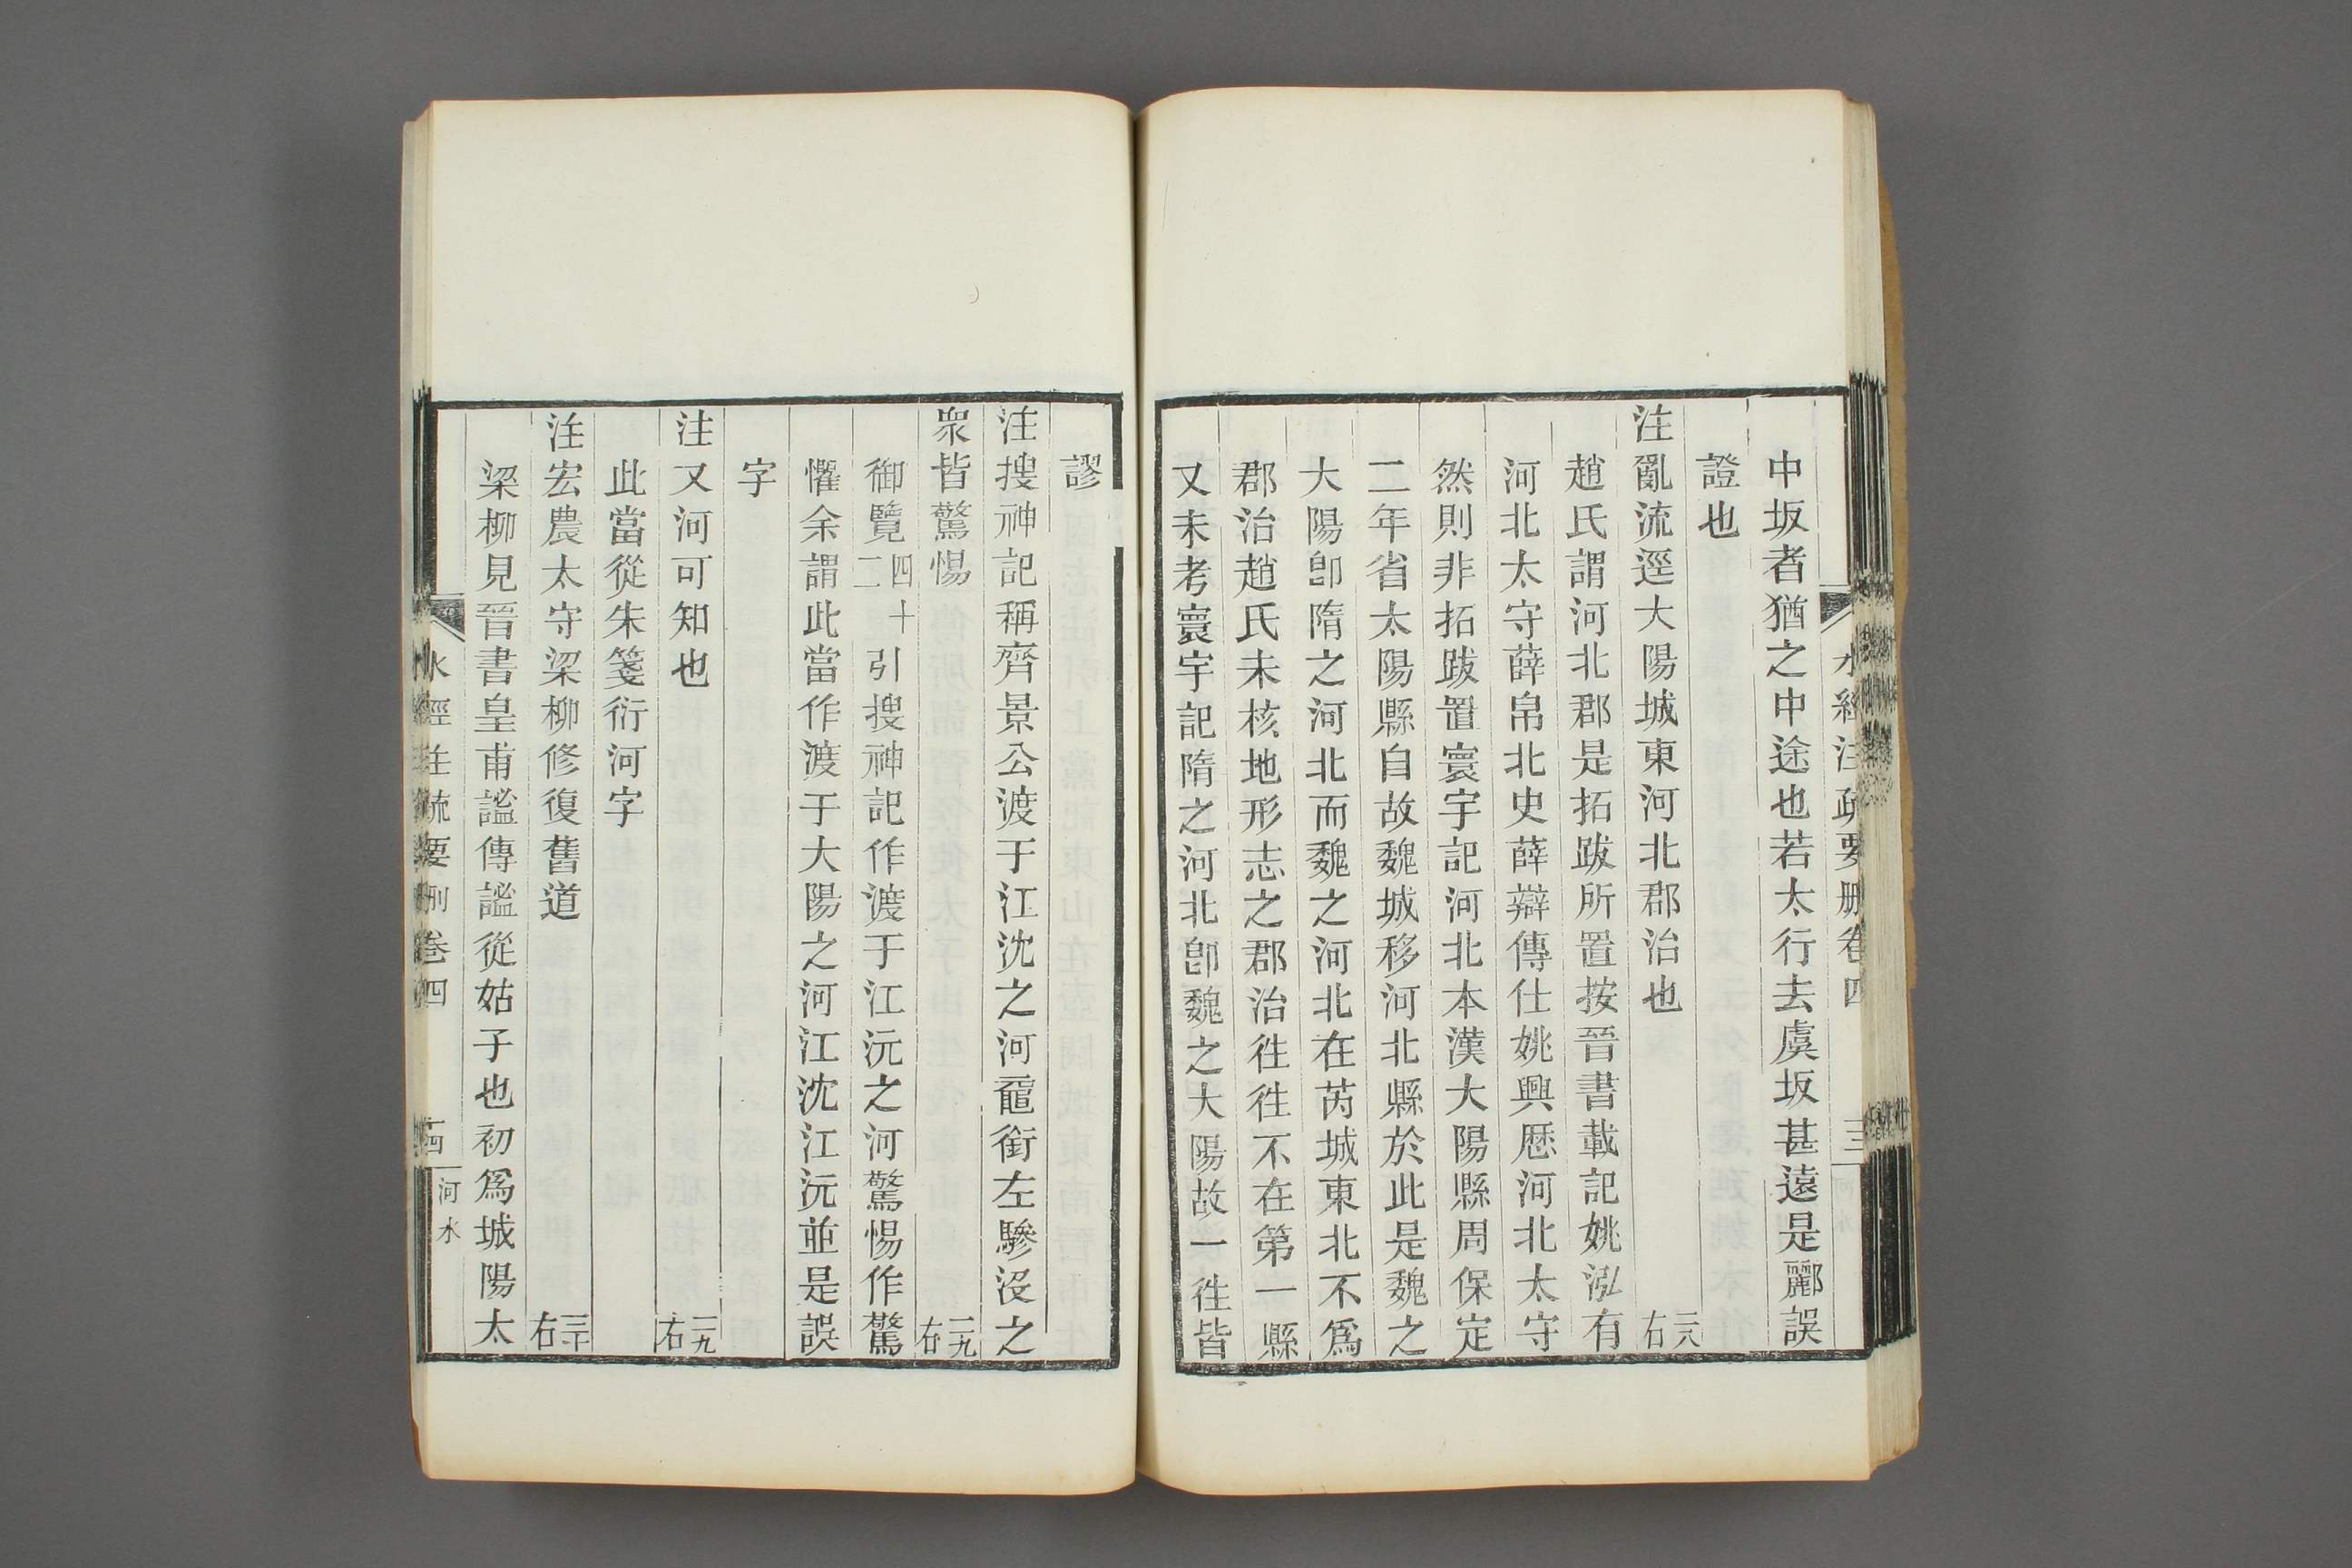 水經注疏要刪卷四
三
河水
中坂者猶之中途也若太行去虞坂甚遠是酈誤
證也
注亂流逕大陽城東河北郡治也 二八右
趙氏謂河北郡是拓跋所置按晉書載記姚泓有
河北太守薛帛北史薛辯傳仕姚興歷河北太守
然則非拓跋置寰宇記河北本漢大陽縣周保定
二年省太陽縣自故魏城移河北縣於此是魏之
大陽卽隋之河北而魏之河北在芮城東北不爲
郡治趙氏未核地形志之郡治往往不在第一縣
又未考寰宇記隋之河北卽魏之大陽故一往皆
謬
注搜神記稱齊景公渡于江沈之河黿銜左驂沒之
衆皆驚惕 二九右
御覽四十二引搜神記作渡于江沅之河驚惕作驚
懼余謂此當作渡于大陽之河江沈江沅並是誤
字
注又河可知也 二九右
此當從朱箋衍河字
注宏農太守梁柳修復舊道 三十右
梁柳見晉書皇甫謐傳謐從姑子也初爲城陽太
水經注疏要刪卷四
四
河水